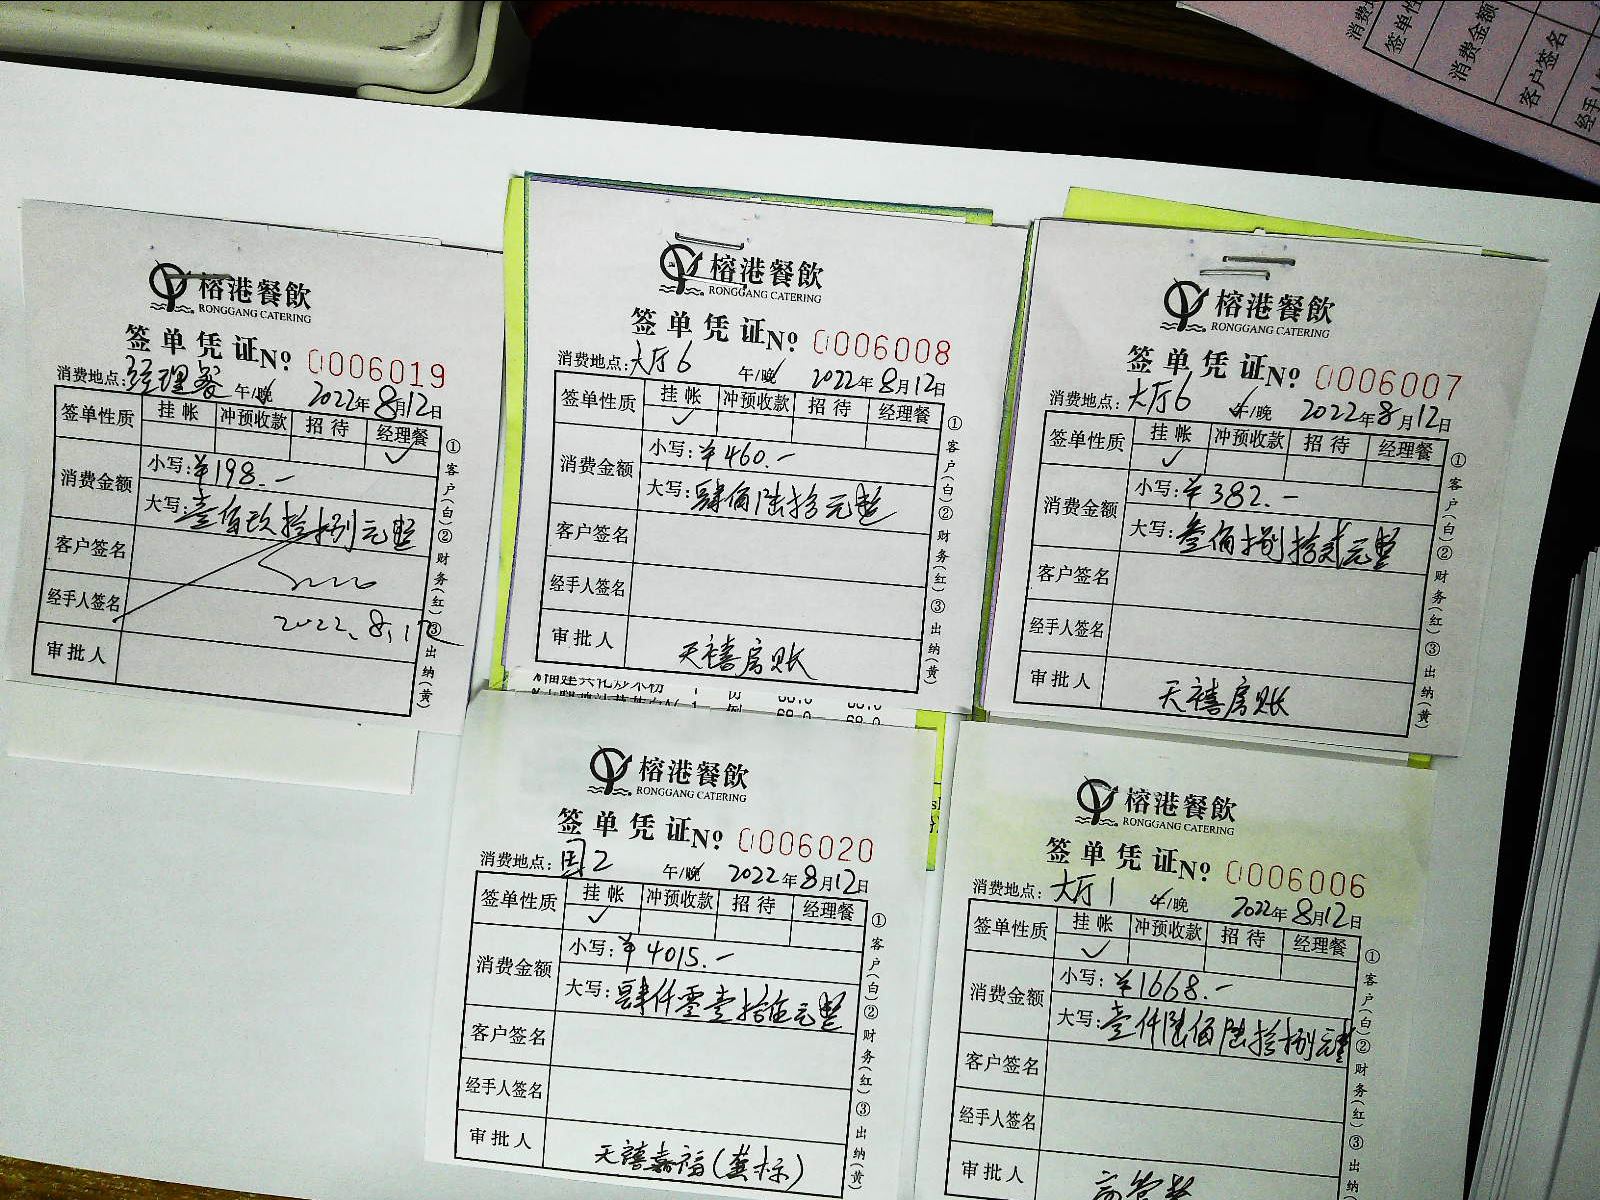 榕港餐飲
RONGGANG CATERING
签单凭证 No 0006019
消费地点:经理餐 午/晚 2022年8月12日
签单性质 挂帐 冲预收款 招待 经理餐
消费金额 小写:¥198.-
大写:壹佰玖拾捌元整
客户签名
经手人签名
2022.8.12
审批人
①客户(白)②财务(红)③出纳(黄)
榕港餐飲
RONGGANG CATERING
签单凭证 No 0006008
消费地点:大厅6 午/晚 2022年8月12日
签单性质 挂帐 冲预收款 招待 经理餐
消费金额 小写:¥460.-
大写:肆佰陆拾元整
客户签名
经手人签名
审批人 天禧房账
①客户(白)②财务(红)③出纳(黄)
榕港餐飲
RONGGANG CATERING
签单凭证 No 0006007
消费地点:大厅6 午/晚 2022年8月12日
签单性质 挂帐 冲预收款 招待 经理餐
消费金额 小写:¥382.-
大写:叁佰捌拾贰元整
客户签名
经手人签名
审批人 天禧房账
①客户(白)②财务(红)③出纳(黄)
68.0 68.0
榕港餐飲
RONGGANG CATERING
签单凭证 No 0006020
消费地点: 午/晚 2022年8月12日
签单性质 挂帐 冲预收款 招待 经理餐
消费金额 小写:¥4015.-
大写:肆仟零壹拾伍元整
客户签名
经手人签名
审批人 天禧嘉福(龚标)
①客户(白)②财务(红)③出纳(黄)
榕港餐飲
RONGGANG CATERING
签单凭证 No 0006006
消费地点:大厅1 午/晚 2022年8月12日
签单性质 挂帐 冲预收款 招待 经理餐
消费金额 小写:¥1668.-
大写:壹仟陆佰陆拾捌元整
客户签名
经手人签名
审批人
①客户(白)②财务(红)③出纳
签单性
消费金额
客户签名
经手人